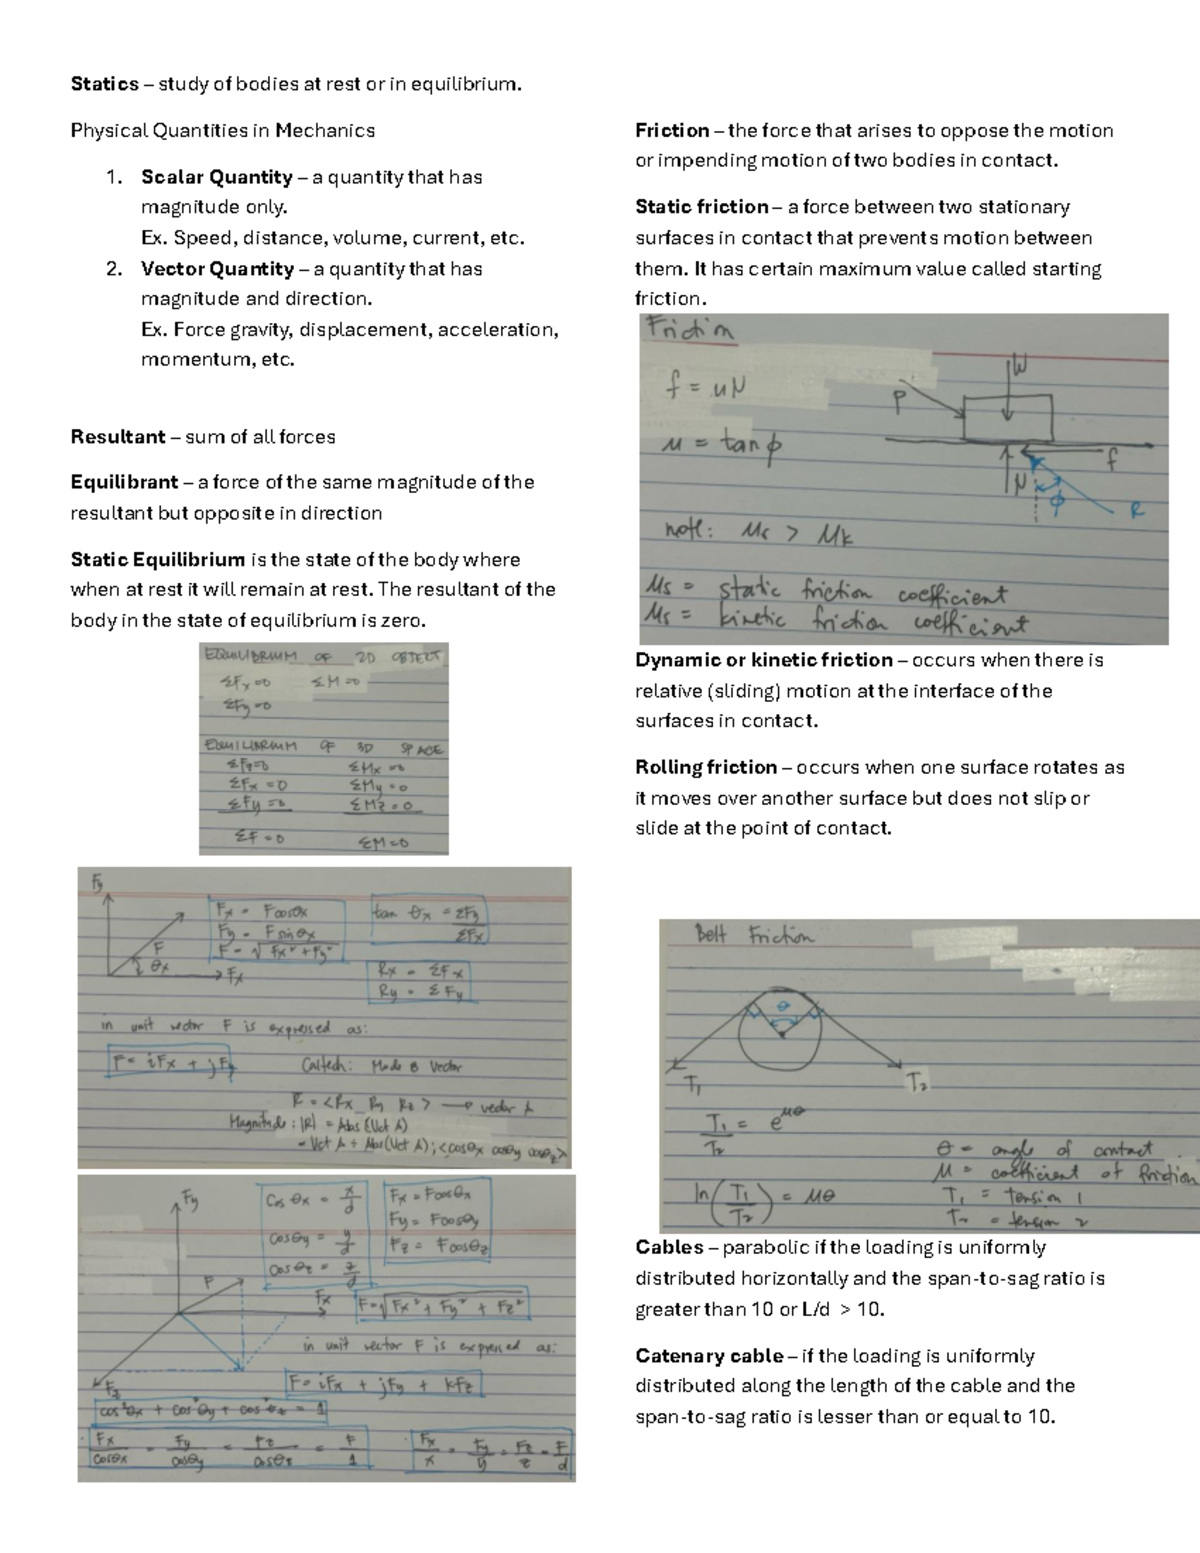 Statics – study of bodies at rest or in equilibrium.
Physical Quantities in Mechanics
1. Scalar Quantity – a quantity that has
magnitude only.
Ex. Speed, distance, volume, current, etc.
2. Vector Quantity – a quantity that has
magnitude and direction.
Ex. Force gravity, displacement, acceleration,
momentum, etc.
Resultant – sum of all forces
Equilibrant – a force of the same magnitude of the
resultant but opposite in direction
Static Equilibrium is the state of the body where
when at rest it will remain at rest. The resultant of the
body in the state of equilibrium is zero.
EQUILIBRIUM OF 2D OBJECT
ΣFx=0 ΣM=0
ΣFy=0
EQUILIBRIUM OF 3D SPACE
ΣFz=0 ΣMx=0
ΣFx=0 ΣMy=0
ΣFy=0 ΣMz=0
ΣF=0 ΣM=0
Fy
F
θx
Fx
Fx = Fcosθx
Fy = Fsinθx
F = √Fx²+Fy²
tan θx = ΣFy/ΣFx
Rx = ΣFx
Ry = ΣFy
in unit vector F is expressed as:
F = iFx + jFy
Caltech: Mode 8 Vector
R = <Rx Ry Rz> → vector A
Magnitude: |R| = Abs(Vct A)
= Vct A ÷ Abs(Vct A); <cosθx cosθy cosθz>
Fy
F
Fx
Fz
Cos θx = x/d
cosθy = y/d
cosθz = z/d
Fx = Fcosθx
Fy = Fcosθy
Fz = Fcosθz
F=√Fx² + Fy² + Fz²
in unit vector F is expressed as:
F = iFx + jFy + kFz
cos²θx + cos²θy + cos²θz = 1
Fx/cosθx = Fy/cosθy = Fz/cosθz = F/1
Fx/x = Fy/y = Fz/z = F/d
Friction – the force that arises to oppose the motion
or impending motion of two bodies in contact.
Static friction – a force between two stationary
surfaces in contact that prevents motion between
them. It has certain maximum value called starting
friction.
Friction
f = μN
μ = tan ϕ
P
W
f
N
ϕ
R
note: μs > μk
μs = static friction coefficient
μs = kinetic friction coefficient
Dynamic or kinetic friction – occurs when there is
relative (sliding) motion at the interface of the
surfaces in contact.
Rolling friction – occurs when one surface rotates as
it moves over another surface but does not slip or
slide at the point of contact.
Belt Friction
θ
T1
T2
T1/T2 = e^μθ
ln(T1/T2) = μθ
θ = angle of contact
μ = coefficient of friction
T1 = tension 1
T2 = tension 2
Cables – parabolic if the loading is uniformly
distributed horizontally and the span-to-sag ratio is
greater than 10 or L/d > 10.
Catenary cable – if the loading is uniformly
distributed along the length of the cable and the
span-to-sag ratio is lesser than or equal to 10.